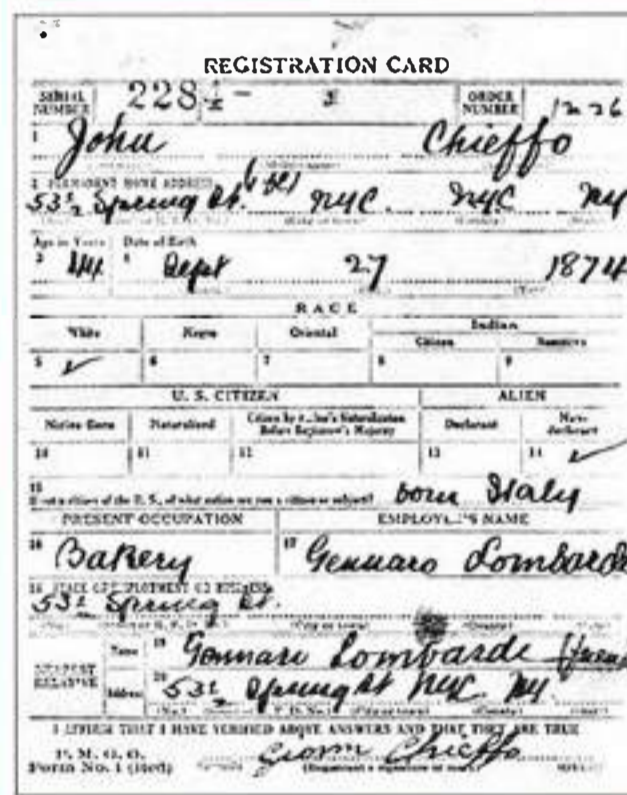 REGISTRATION CARD
SERIAL NUMBER 228 ORDER NUMBER 1226
1 John Chieffo
2 PERMANENT HOME ADDRESS
53½ Spring St. NYC NYC NY
Age in Years Date of Birth
3 44 4 Sept 27 1874
RACE
White Negro Oriental Indian
Citizen
5 ✓ 6 7 8 9
U. S. CITIZEN ALIEN
Native Born Naturalized Citizen by Naturalization Before Majority Declarant Non-declarant
10 11 12 13 14 ✓
15
If not a citizen of the U. S., of what nation are you a citizen or subject? born Italy
PRESENT OCCUPATION EMPLOYER'S NAME
16 Bakery 17 Gennaro Lombarde
18 PLACE OF EMPLOYMENT OR BUSINESS
53½ Spring St.
NEAREST RELATIVE Name 19 Gennaro Lombarde
Address 20 53½ Spring St NYC NY
I AFFIRM THAT I HAVE VERIFIED ABOVE ANSWERS AND THAT THEY ARE TRUE
P. M. G. O.
Form No. 1 (Red) Chieffo
(Registrant's signature or mark)